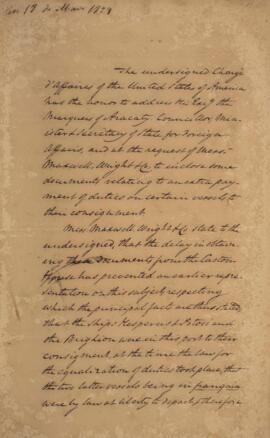 18 de Março 1829
The undersigned Chargé
d'affaires of the United States of America
has the honor to address His Excy the
Marquess of Aracaty, Councillor, Min-
ister & Secretary of State for Foreign
Affairs, and at the request of Messrs
Maxwell, Wright & Co. to inclose some
documents relating to an extra pay-
ment of duties on certain vessels to
their consignment.
Messrs Maxwell, Wright & Co state to the
undersigned, that the delay in obtain-
ing these documents from the Custom
House has prevented an earlier repre-
sentation on this subject, respecting
which the principal facts are thus stated,
that the Ships Hesperus & Potosi and
the Brig were in this port to their
consignment, at the time the law for
the equalization of duties took place, that
the two latter vessels being in franquia
were by law at liberty to depart, & therefore